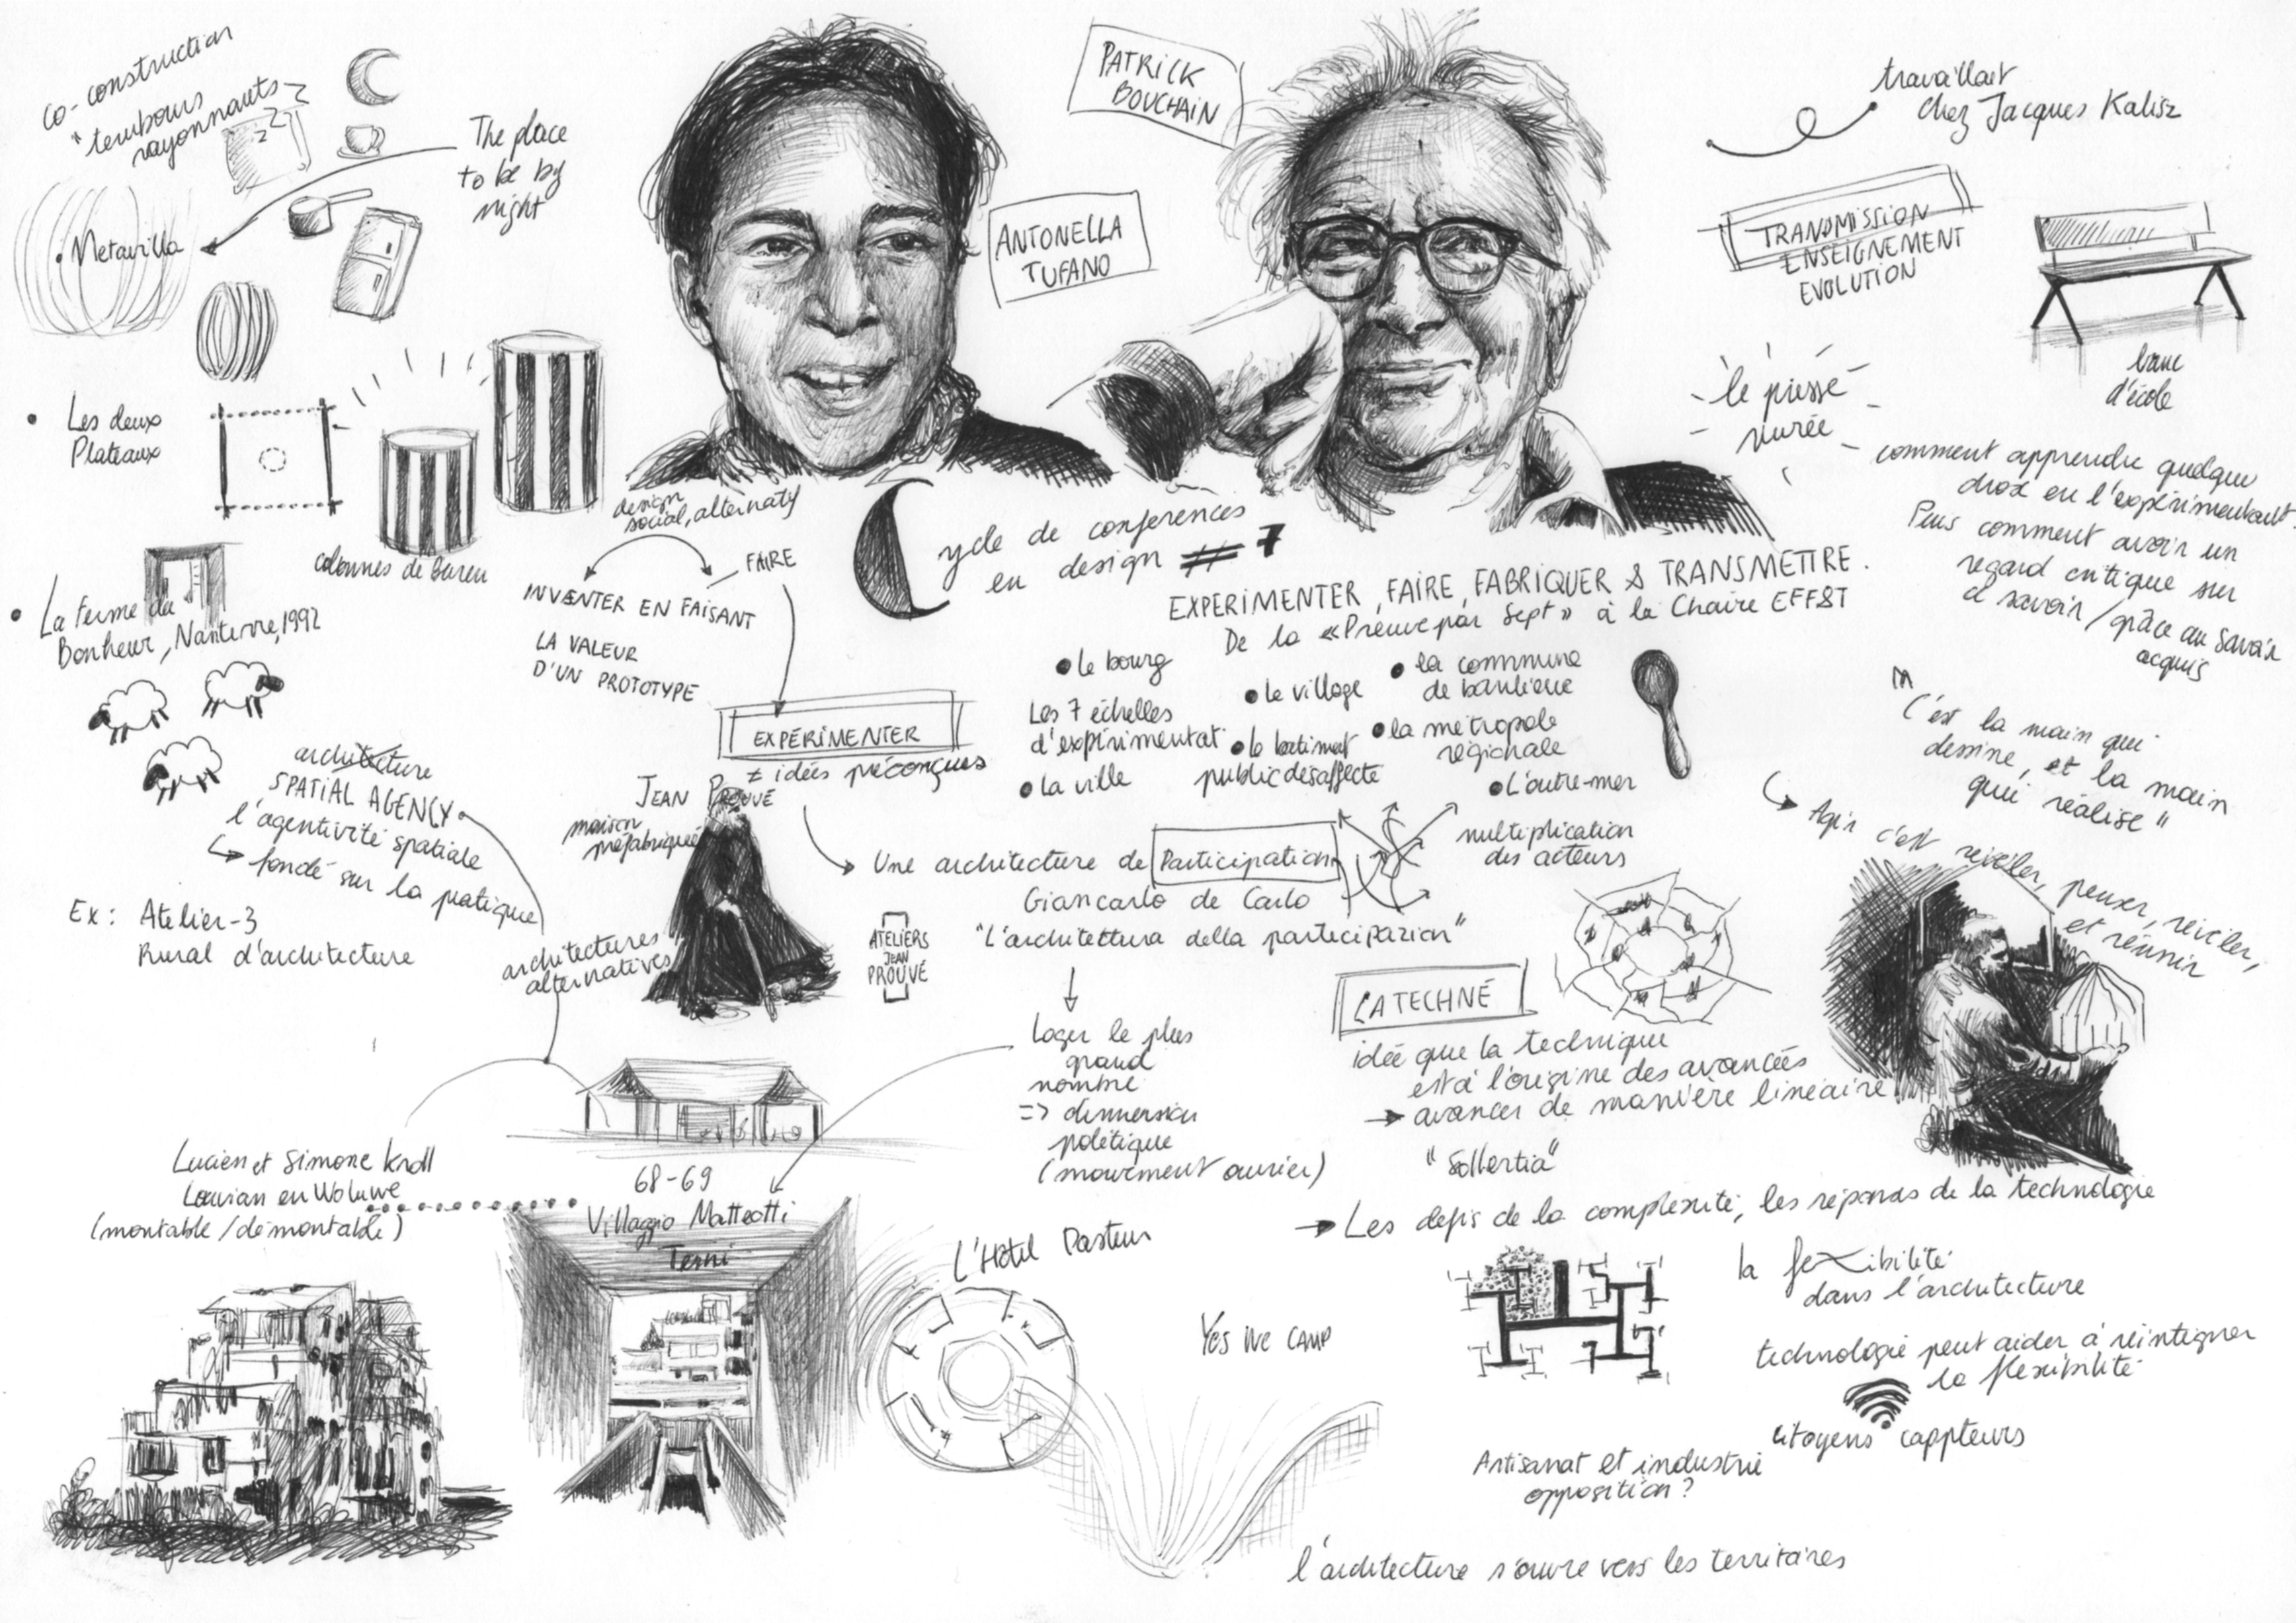 co-construction
"tembours
rayonnants
The place
to be by
night
Metavilla
Les deux
Plateaux
colonnes de buren
La ferme du
Bonheur, Nanterre, 1992
architecture
SPATIAL AGENCY
l'agentivité spatiale
fondé sur la pratique
Ex : Atelier-3
Rural d'architecture
architectures
alternatives
Lucien et Simone Kroll
Louvian en Woluwe
(montable / démontable)
PATRICK
BOUCHAIN
ANTONELLA
TUFANO
design
social, alternatif
FAIRE
INVENTER EN FAISANT
LA VALEUR
D'UN PROTOTYPE
EXPÉRIMENTER
≠ idées préconçues
JEAN PROUVÉ
maison
préfabriquée
ATELIERS
JEAN
PROUVÉ
Cycle de conferences
en design #7
EXPERIMENTER, FAIRE, FABRIQUER & TRANSMETTRE.
De la «Preuve par Sept» à la Chaire EFF&T
le bourg
le village
la commune
de banlieue
Les 7 échelles
d'expérimentat
le batiment
public désaffecté
la métropole
régionale
La ville
L'outre-mer
Une architecture de Participation
Giancarlo de Carlo
"L'architettura della partecipazion"
multiplication
des acteurs
Loger le plus
grand
nombre
=> dimension
politique
(mouvement ouvrier)
68-69
Villaggio Matteotti
Terni
L'Hôtel Pasteur
YES WE CAMP
travaillait
chez Jacques Kalisz
TRANSMISSION
ENSEIGNEMENT
EVOLUTION
banc
d'école
comment apprendre quelque
chose en l'expérimentant
Puis comment avoir un
regard critique sur
ce savoir / grâce au savoir
acquis
C'est la main qui
dessine, et la main
qui réalise"
Agir c'est révéler, penser, révéler,
et réunir
LA TECHNÉ
idée que la technique
est à l'origine des avancées
→ avancer de manière linéaire
"Sollertia"
→ Les defis de la complexité, les réponds de la technologie
la flexibilité
dans l'architecture
technologie peut aider à réintégrer
la flexibilité
citoyens cappteurs
Artisanat et industrie
opposition ?
l'architecture s'ouvre vers les territoires